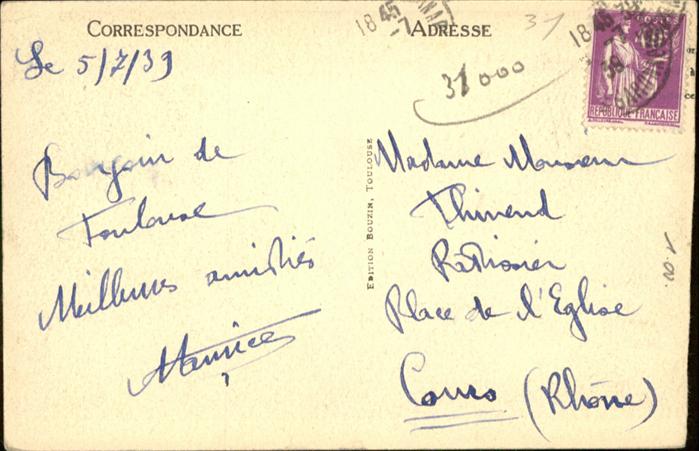 CORRESPONDANCE
ADRESSE
31
31000
Le 5/7/39
18 45
-7
18 45
POSTES
RÉPUBLIQUE FRANÇAISE
Bonjour de
Toulouse
Meilleures amitiés
Maurice
EDITION BOUZIN, TOULOUSE
Madame Monsieur
Thivend
Pâtissier
Place de l'Eglise
Cours (Rhône)
1.00.